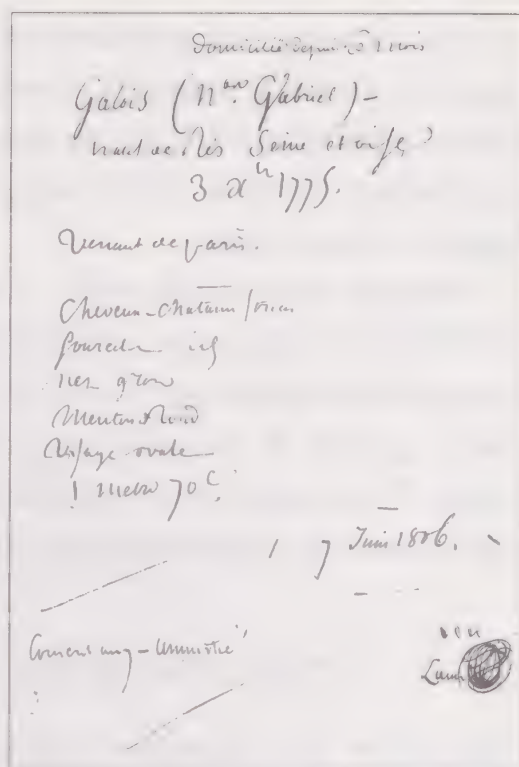 Domicilié depuis 2 mois
Galois (nas Gabriel) –
natif de Seine et oise
3 xbre 1775.
Venant de paris.
Cheveux - Chatains
Sourcils id
nez gros
Menton Rond
Visage ovale
1 metre 70 c.
7 Juin 1806.
vu